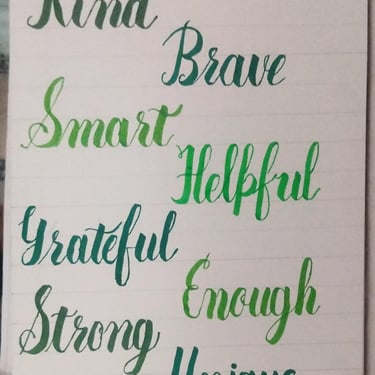 Kind
Brave
Smart
Helpful
grateful
Enough
Strong
Unique